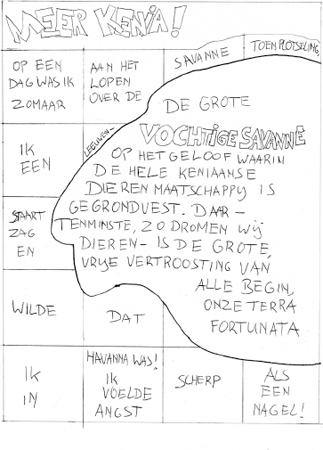 MEER KENIA!
OP EEN
DAG WAS IK
ZOMAAR
AAN HET
LOPEN
OVER DE
SAVANNE
TOEN PLOTSELING
IK
EEN
LEEUWEN-
STAART
ZAG
EN
WILDE
DAT
DE GROTE
VOCHTIGE SAVANNE
OP HET GELOOF WAARIN
DE HELE KENIAANSE
DIEREN MAATSCHAPPY IS
GEGRONDVEST. DAAR-
TENMINSTE, ZO DROMEN WIJ
DIEREN- IS DE GROTE,
VRIJE VERTROOSTING VAN
ALLE BEGIN,
ONZE TERRA
FORTUNATA
IK
IN
HAVANNA WAS!
IK
VOELDE
ANGST
SCHERP
ALS
EEN
NAGEL!